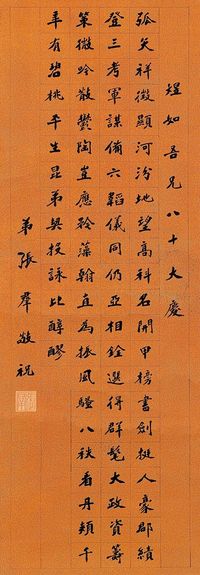 煜如吾兄八十大慶
弧矢祥徵顯河汾地望高科名開甲榜書劍挺人豪郡績
登三考軍謀備六韜儀同仍亞相銓選得群髦大政資籌
策微吟散鬱陶豈應矜藻翰直為振風騷八秩看丹頰千
年有碧桃平生昆弟契投詠比醇醪
弟張羣敬祝